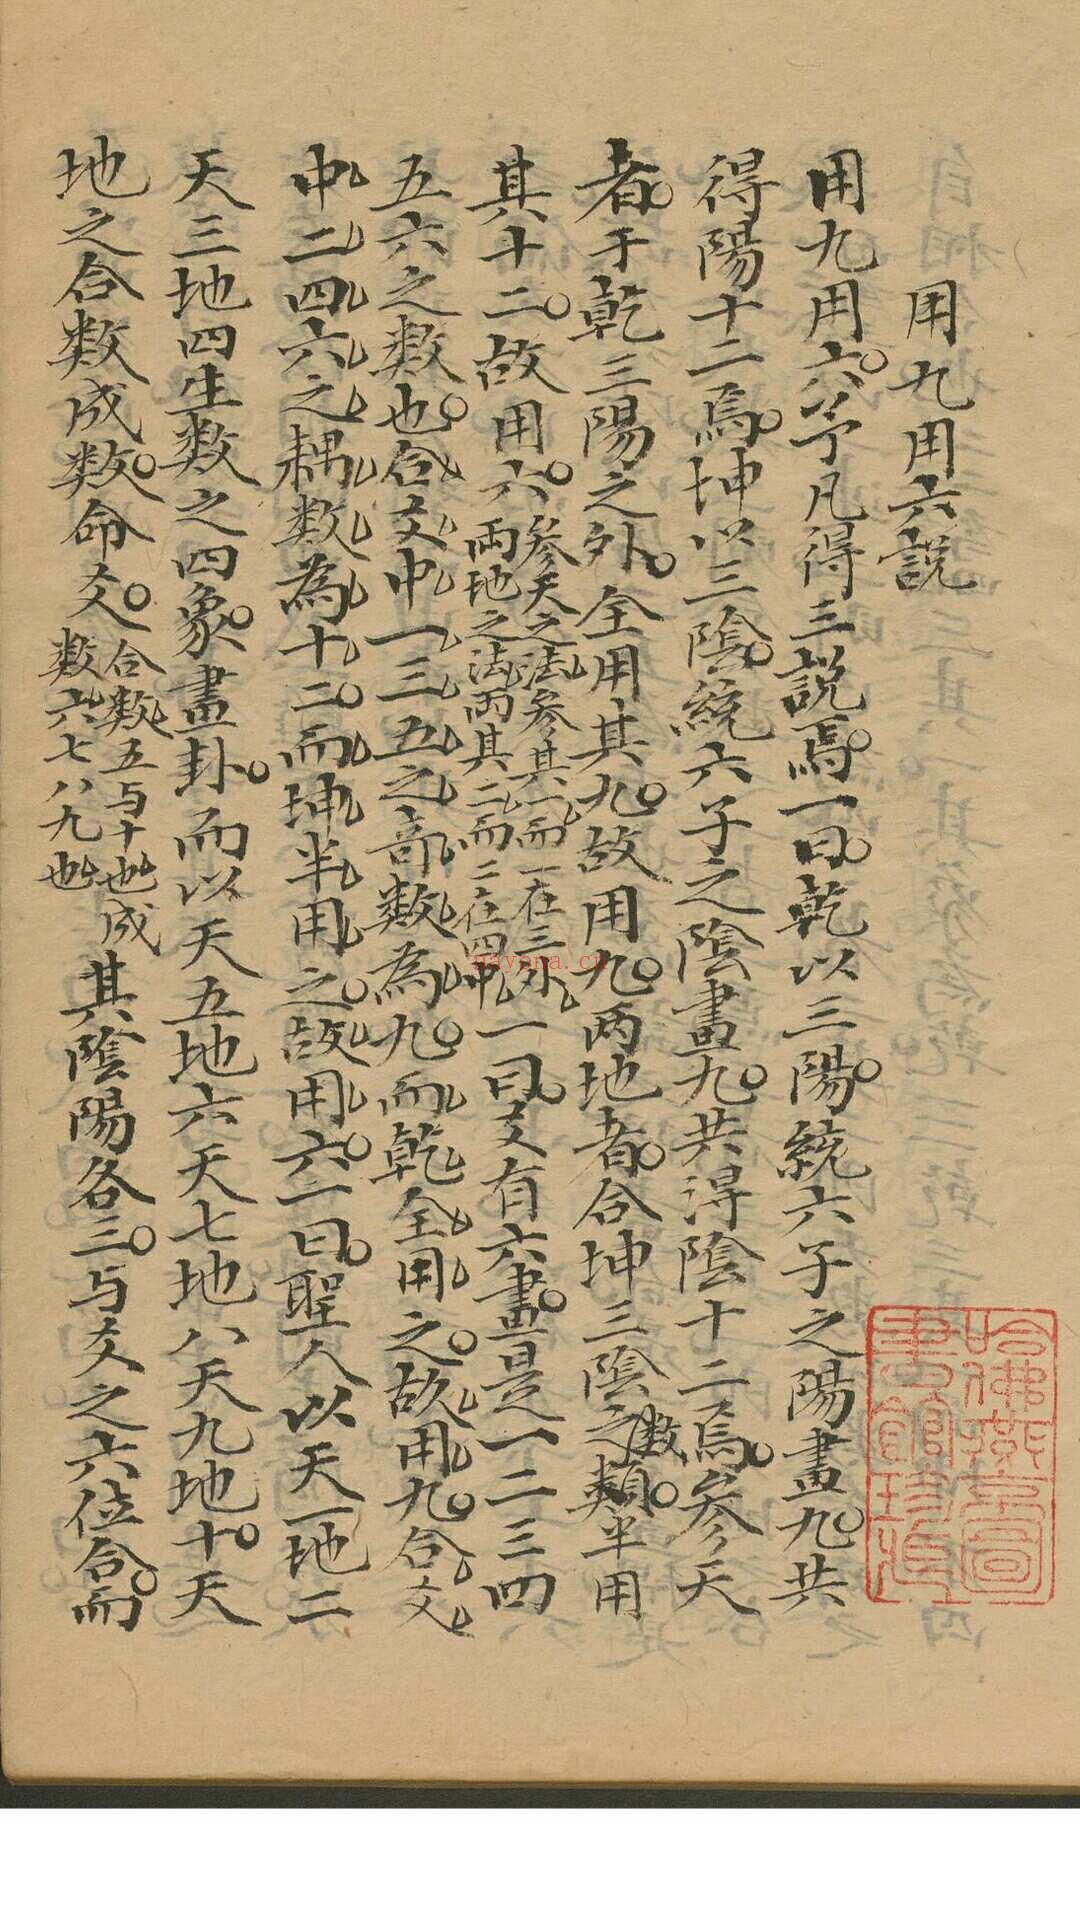 用九用六說
用九用六。予凡得三說焉。一曰。乾以三陽。統六子之陽畫九。共
得陽十二焉。坤以三陰。統六子之陰畫九。共得陰十二焉。參天
者。于乾三陽之外。全用其九。故用九。兩地者。合坤三陰之數類。半用
其十二。故用六。參天之法。參其一而一在三外
兩地之法。兩其二而二在四中
一曰。爻有六畫。是一二三四
五六之數也。合爻中一三五之竒數為九。而乾全用之。故用九。合爻
中二四六之耦數為十二。而坤半用之。故用六。一曰。聖人以天一地二
天三地四生數之四象。畫卦。而以天五地六天七地八天九地十。天
地之合數成數。命爻。合數五与十也成
數六七八九也
其陰陽各三。与爻之六位合。而
哈佛燕京
圖書館珍藏